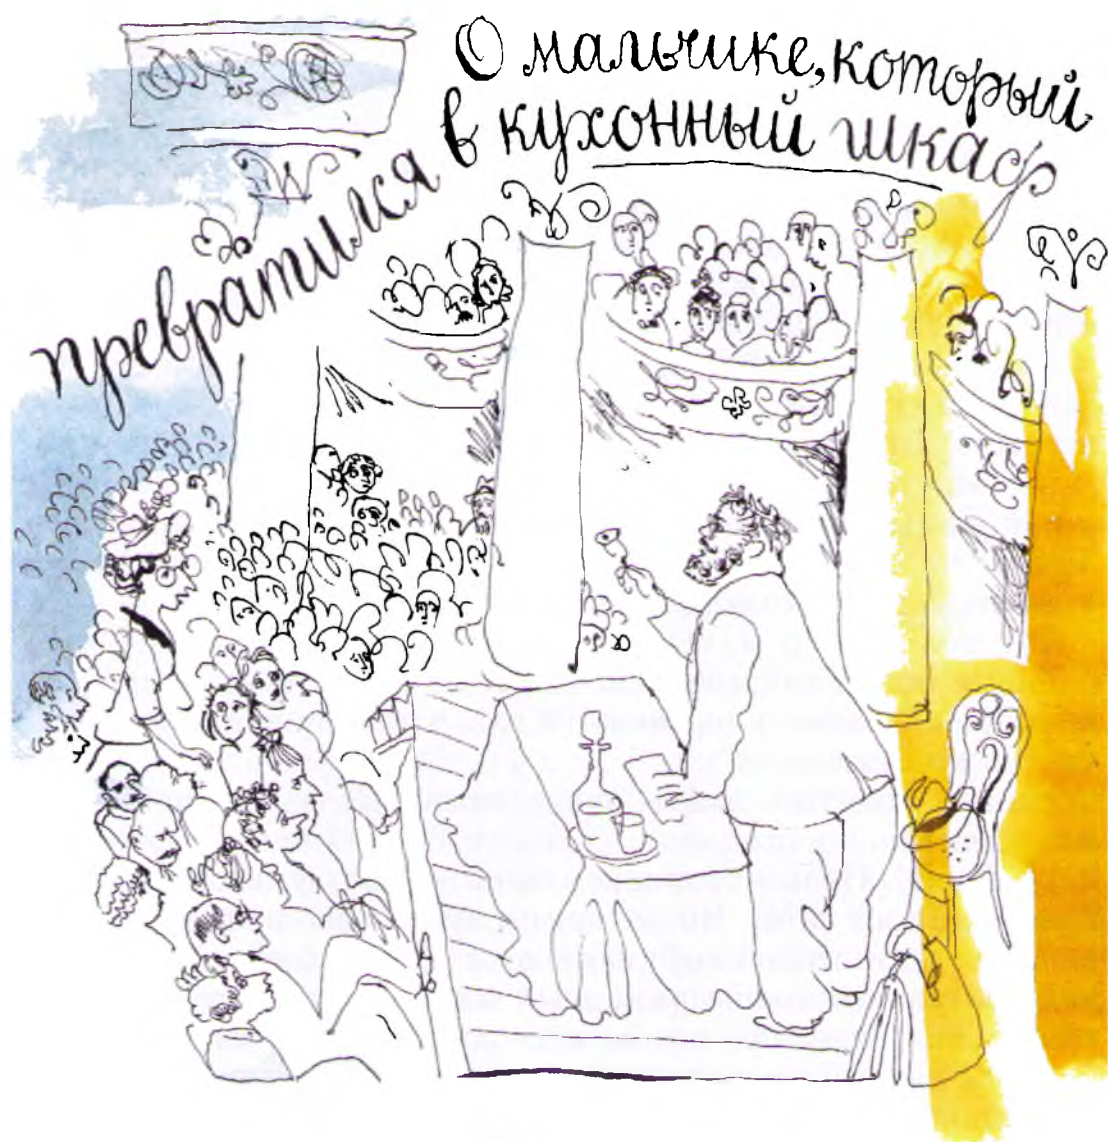 О мальчике, который
превратился в кухонный шкаф